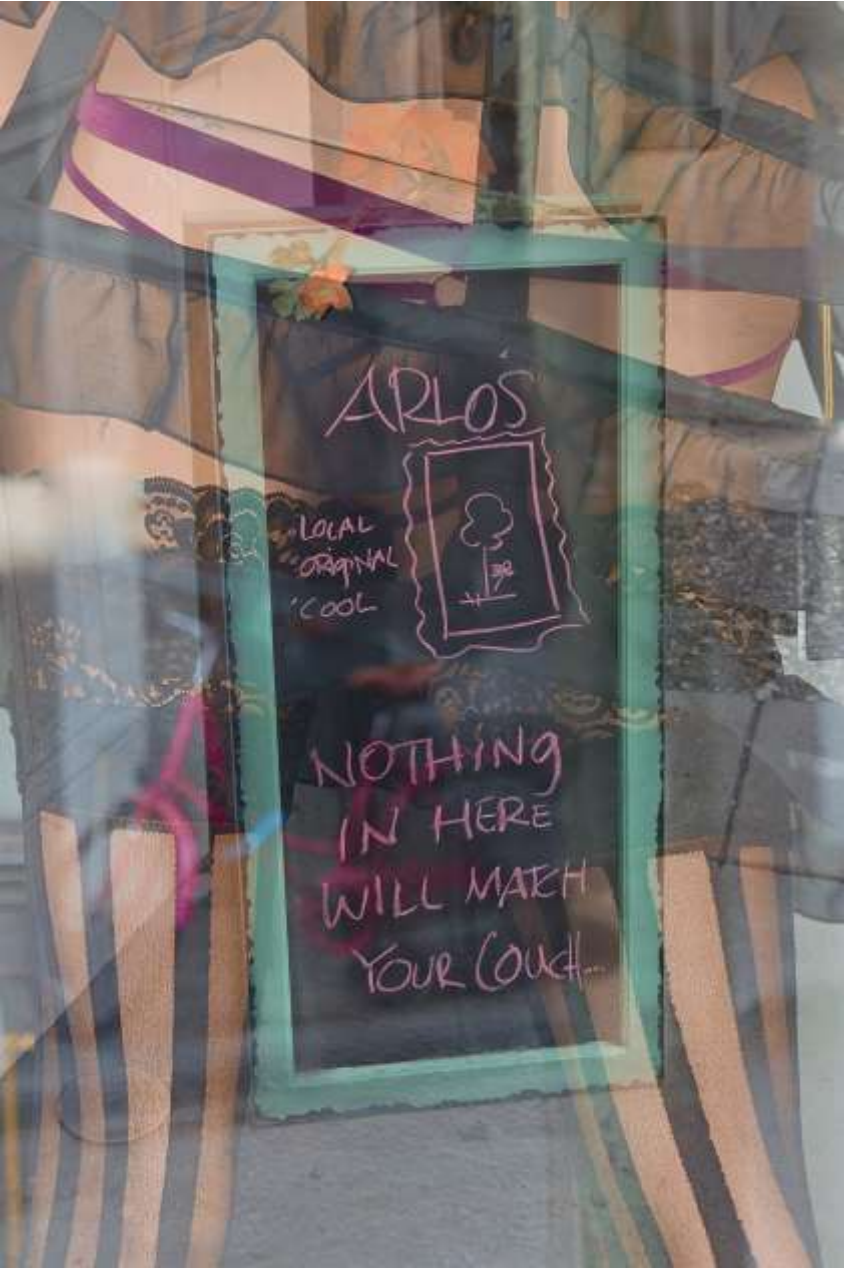 ARLO'S
·LOCAL
·ORIGINAL
·COOL
NOTHING
IN HERE
WILL MATCH
YOUR COUCH...